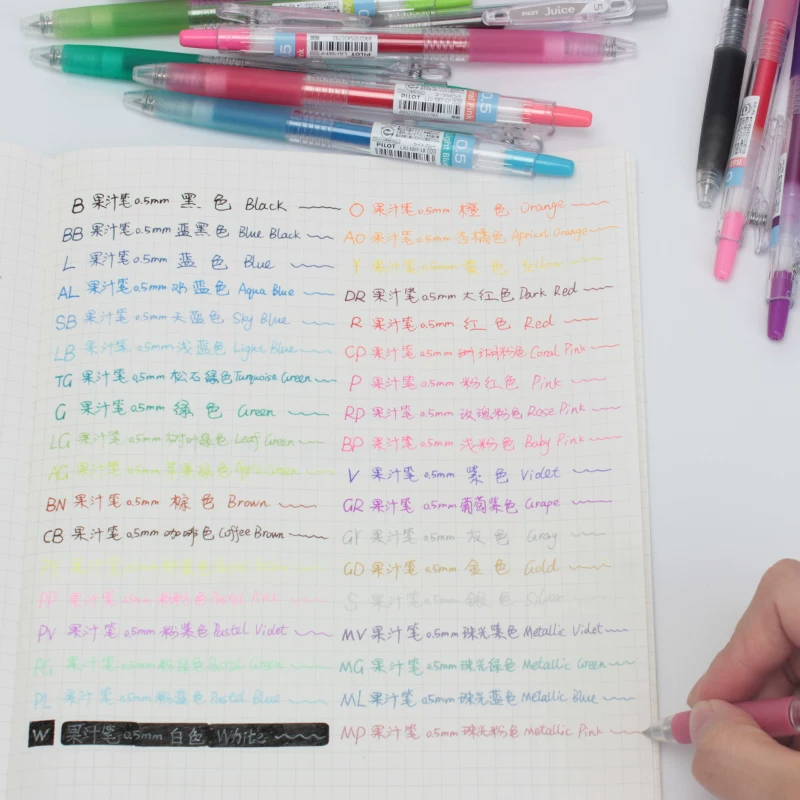 PILOT Juice 5
0.5
PILOT
0.5
PILOT
Light Blue 0.5
B 果汁笔 0.5mm 黑色 Black
BB 果汁笔 0.5mm 蓝黑色 Blue Black
L 果汁笔 0.5mm 蓝色 Blue
AL 果汁笔 0.5mm 水蓝色 Aqua Blue
SB 果汁笔 0.5mm 天蓝色 Sky Blue
LB 果汁笔 0.5mm 浅蓝色 Light Blue
TG 果汁笔 0.5mm 松石绿色 Turquoise Green
G 果汁笔 0.5mm 绿色 Green
LG 果汁笔 0.5mm 树叶绿色 Leaf Green
AG 果汁笔 0.5mm 苹果绿色 Green
BN 果汁笔 0.5mm 棕色 Brown
CB 果汁笔 0.5mm 咖啡色 Coffee Brown
果汁笔 0.5mm
PP 果汁笔 0.5mm 粉粉色 Pastel Pink
PV 果汁笔 0.5mm 粉紫色 Pastel Violet
PG 果汁笔 0.5mm 粉绿色 Pastel Green
PL 果汁笔 0.5mm 粉蓝色 Pastel Blue
W 果汁笔 0.5mm 白色 White
O 果汁笔 0.5mm 橙色 Orange
AO 果汁笔 0.5mm 杏橘色 Apricot Orange
Y 果汁笔 0.5mm 黄色 Yellow
DR 果汁笔 0.5mm 大红色 Dark Red
R 果汁笔 0.5mm 红色 Red
CP 果汁笔 0.5mm 珊瑚粉色 Coral Pink
P 果汁笔 0.5mm 粉红色 Pink
RP 果汁笔 0.5mm 玫瑰粉色 Rose Pink
BP 果汁笔 0.5mm 浅粉色 Baby Pink
V 果汁笔 0.5mm 紫色 Violet
GR 果汁笔 0.5mm 葡萄紫色 Grape
GY 果汁笔 0.5mm 灰色 Gray
GD 果汁笔 0.5mm 金色 Gold
S 果汁笔 0.5mm 银色 Silver
MV 果汁笔 0.5mm 珠光紫色 Metallic Violet
MG 果汁笔 0.5mm 珠光绿色 Metallic Green
ML 果汁笔 0.5mm 珠光蓝色 Metallic Blue
MP 果汁笔 0.5mm 珠光粉色 Metallic Pink